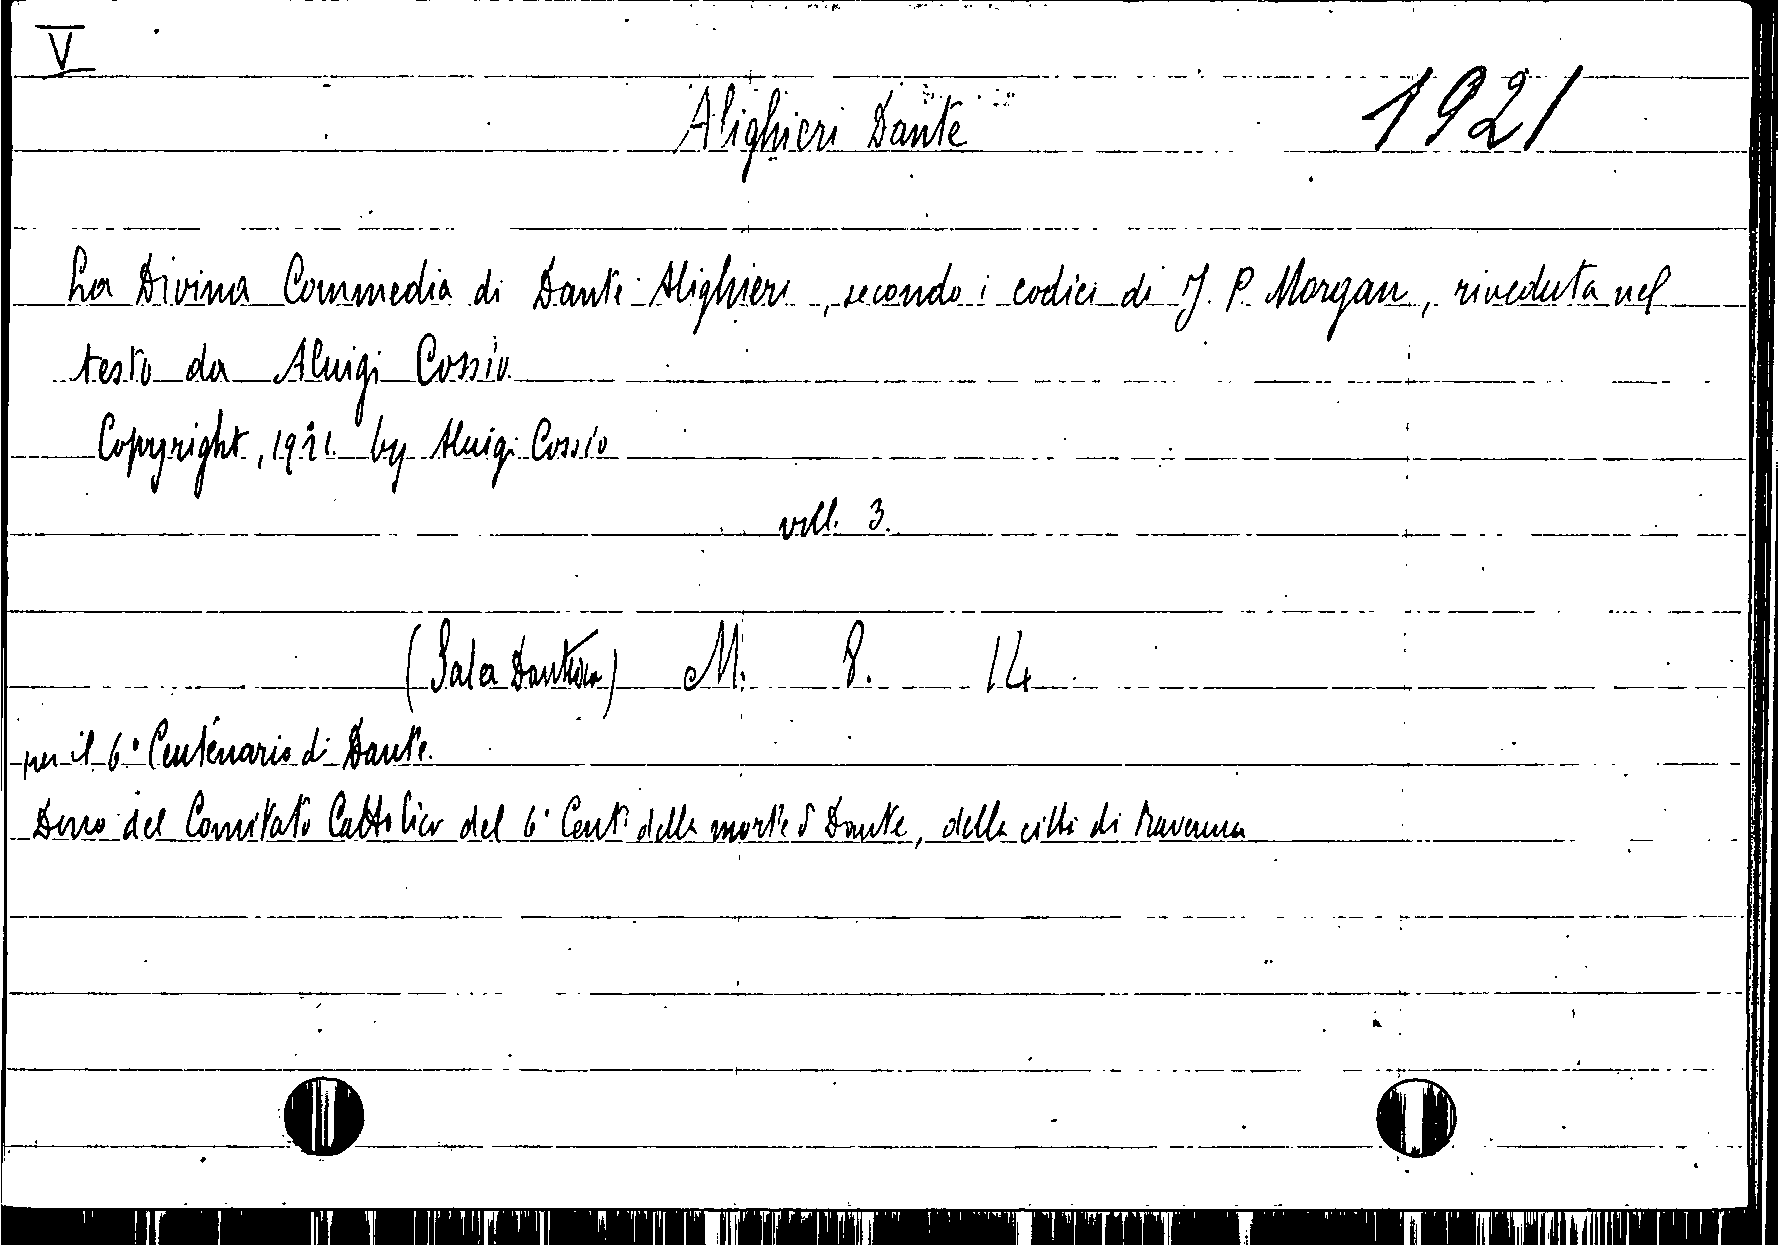 V
Alighieri Dante 1921
La Divina Commedia di Dante Alighieri, secondo i codici di J. P. Morgan, riveduta nel
testo da Aluigi Cossio
Copyright, 1921 by Aluigi Cossio
voll. 3.
(Sala Dantesca) M. 8. 14
per il 6° Centenario di Dante.
Dono del Comitato Cattolico del 6° Cent. della morte d Dante, della città di Ravenna